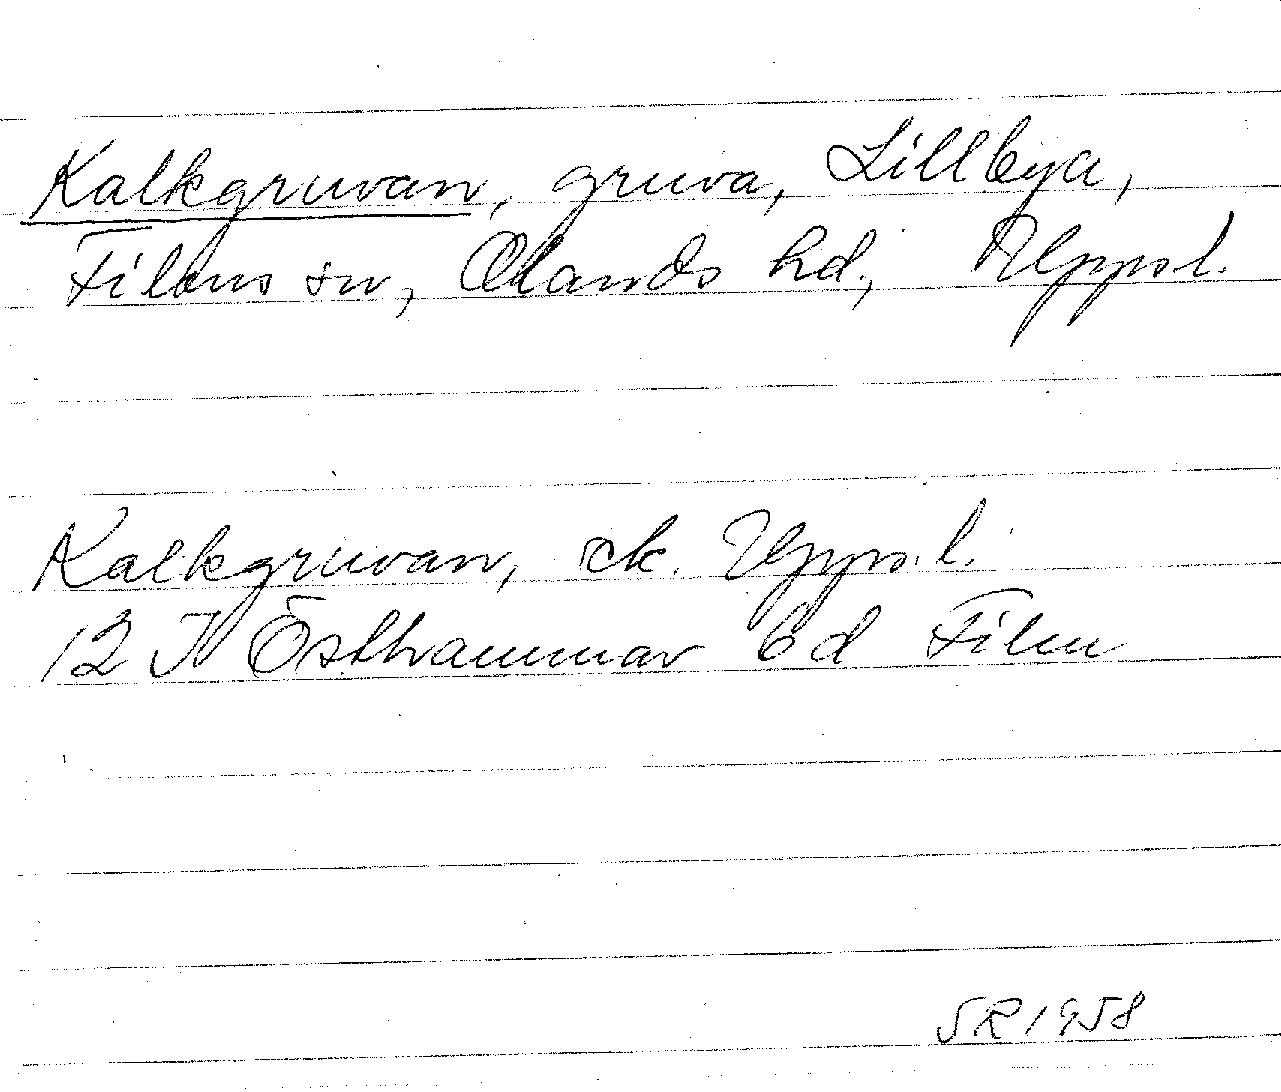 Kalkgruvan, gruva, Lillbya,
Films sn, Olands hd, Uppsl.
Kalkgruvan, ek. Upps. l.
12 I Östhammar 6d Film
SR 1958